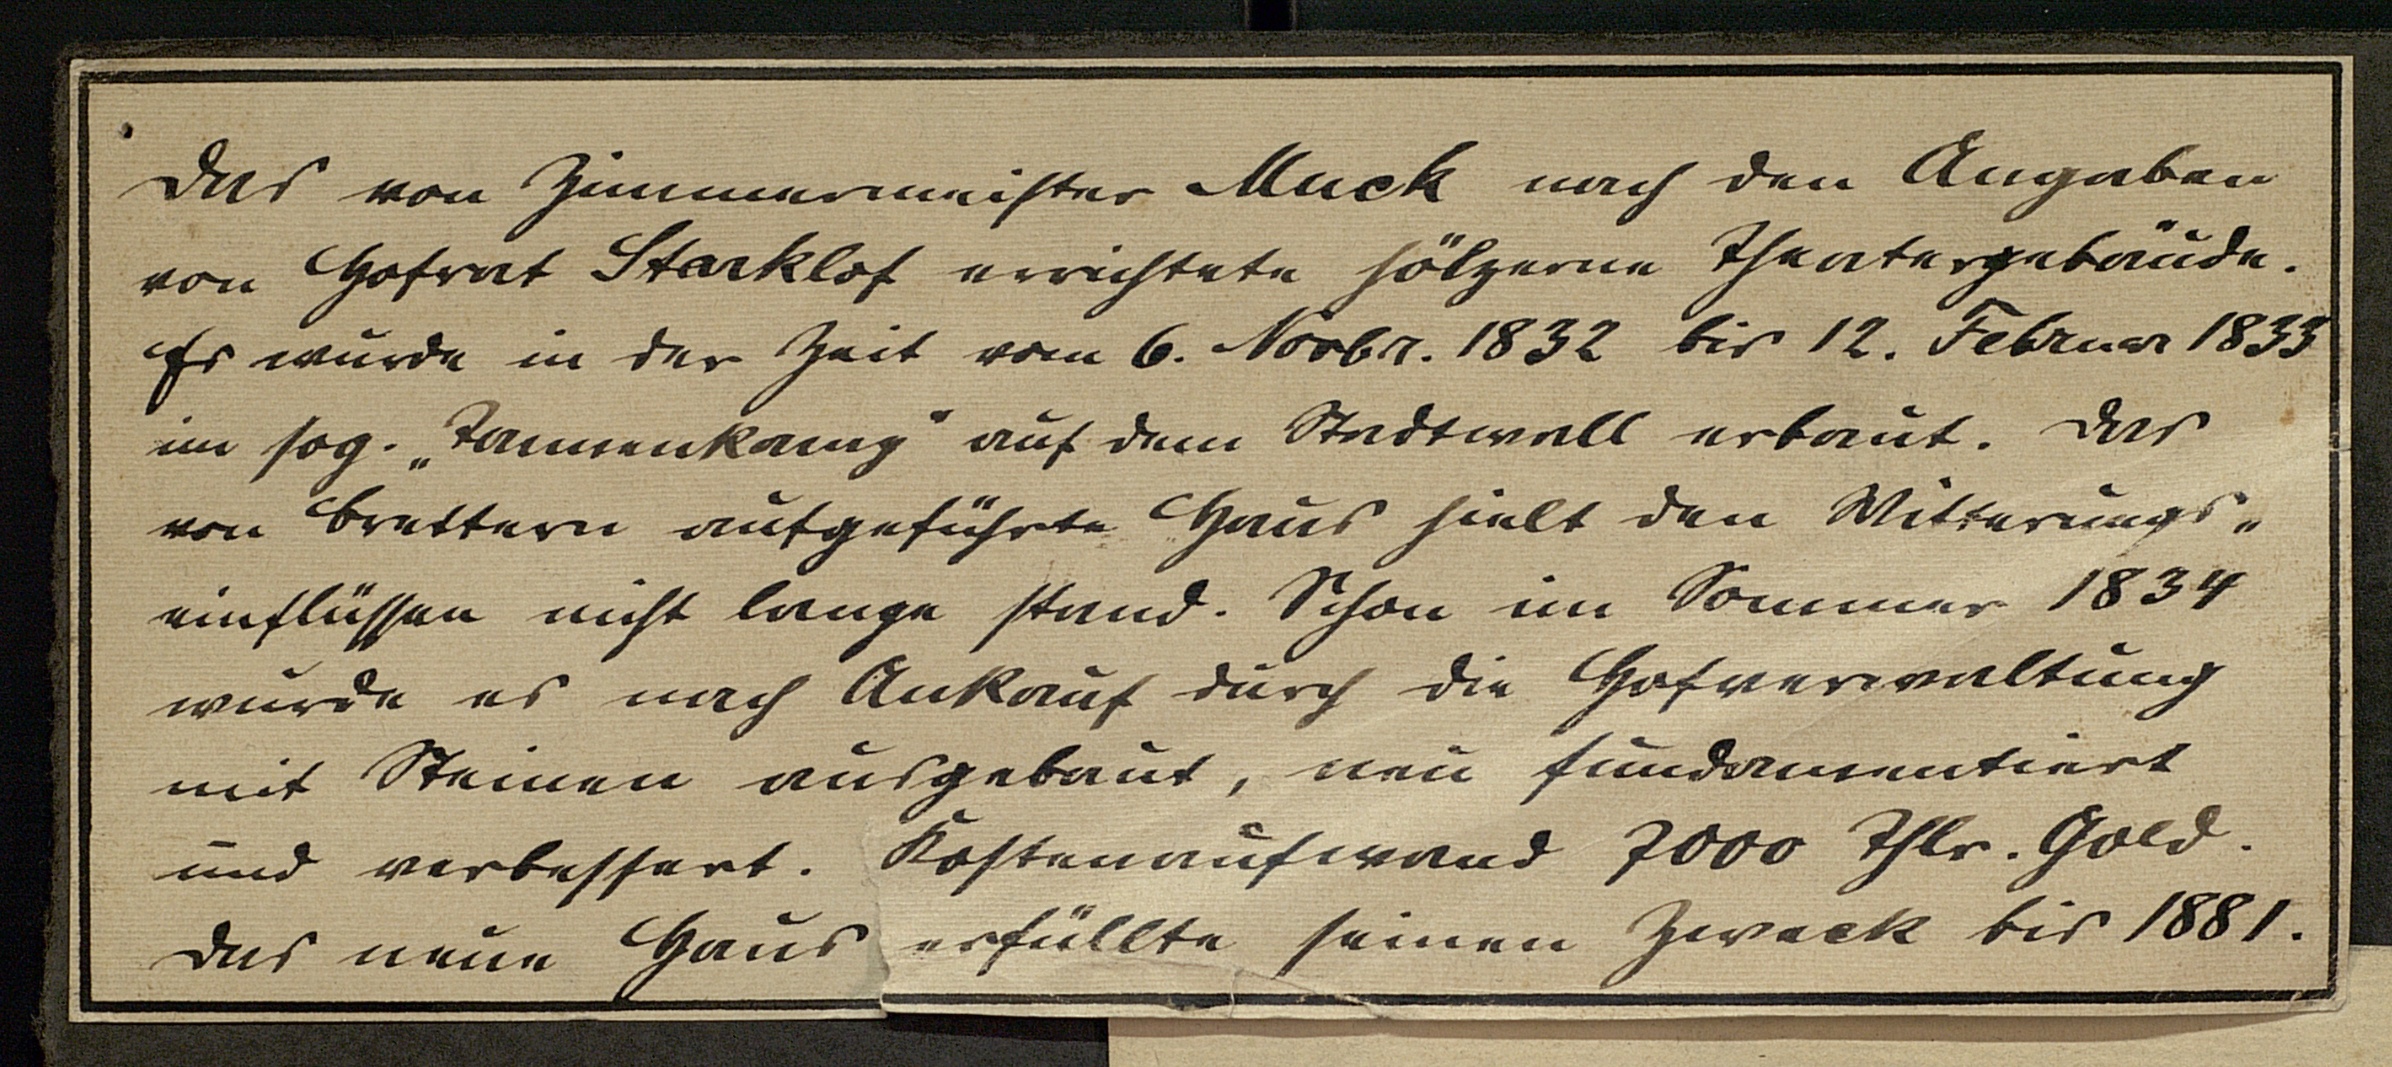 Das von Zimmermeister Muck nach den Angaben
von Hofrat Starklof errichtete hölzerne Theatergebäude.
Es wurde in der Zeit vom 6. Novbr. 1832 bis 12. Februar 1833
im sog. „Tannenkamp" auf dem Stadtwall erbaut. Das
von Brettern aufgeführte Haus hielt den Witterungs-
einflüssen nicht lange stand. Schon im Sommer 1834
wurde es nach Ankauf durch die Hofverwaltung
mit Steinen ausgebaut, neu fundamentiert
und verbessert. Kostenaufwand 7000 Thlr. Gold.
Das neue Haus erfüllte seinen Zweck bis 1881.